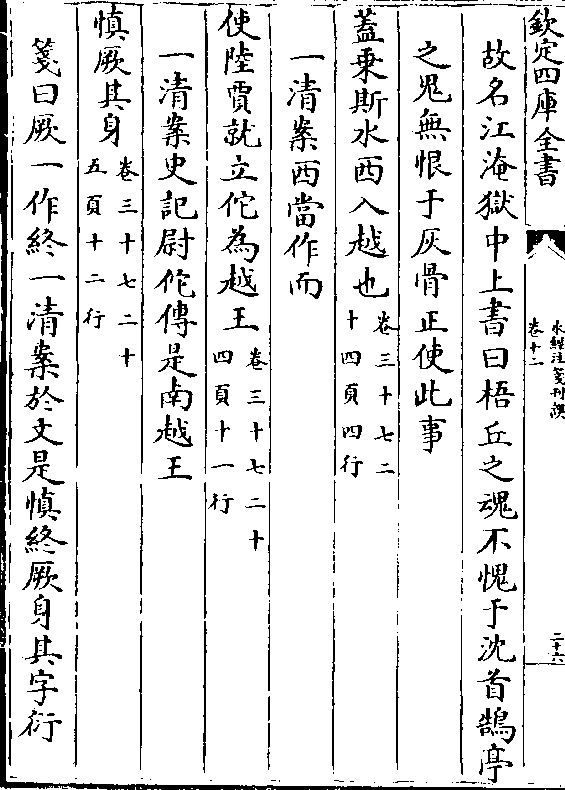 欽定四庫全書
水經注箋刊誤
卷十二
二十六
故名江淹獄中上書曰梧丘之魂不愧于沈首鵠亭
之鬼無恨于灰骨正使此事
蓋乗斯水西入越也卷三十七二
十四頁四行
一清案西當作而
使陸賈就立佗為越王卷三十七二十
四頁十一行
一清案史記尉佗傳是南越王
慎厥其身卷三十七二十
五頁十二行
箋曰厥一作終一清案於文是慎終厥身其字衍